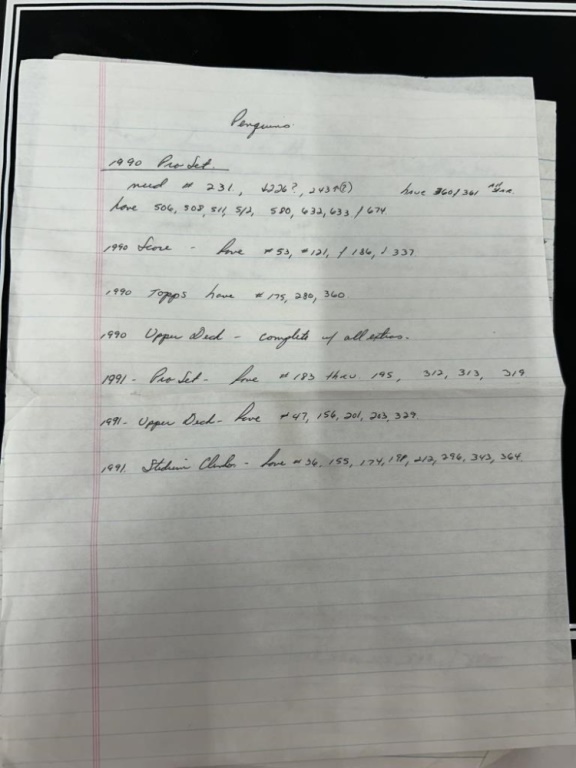 Penguins
1990 Pro Set
need # 231, 243 have 360/361
have 506, 508, 511, 512, 580, 632, 633 / 674
1990 Score - have #53, #121, / 186, 337
1990 Topps have #175, 280, 360
1990 Upper Deck - complete w/ all extras.
1991 - Pro Set - have #183 thru 195, 312, 313, 319
1991 - Upper Deck - have #47, 156, 201, 203, 329
1991 Stadium - have #36, 155, 174, 198, 212, 296, 343, 364